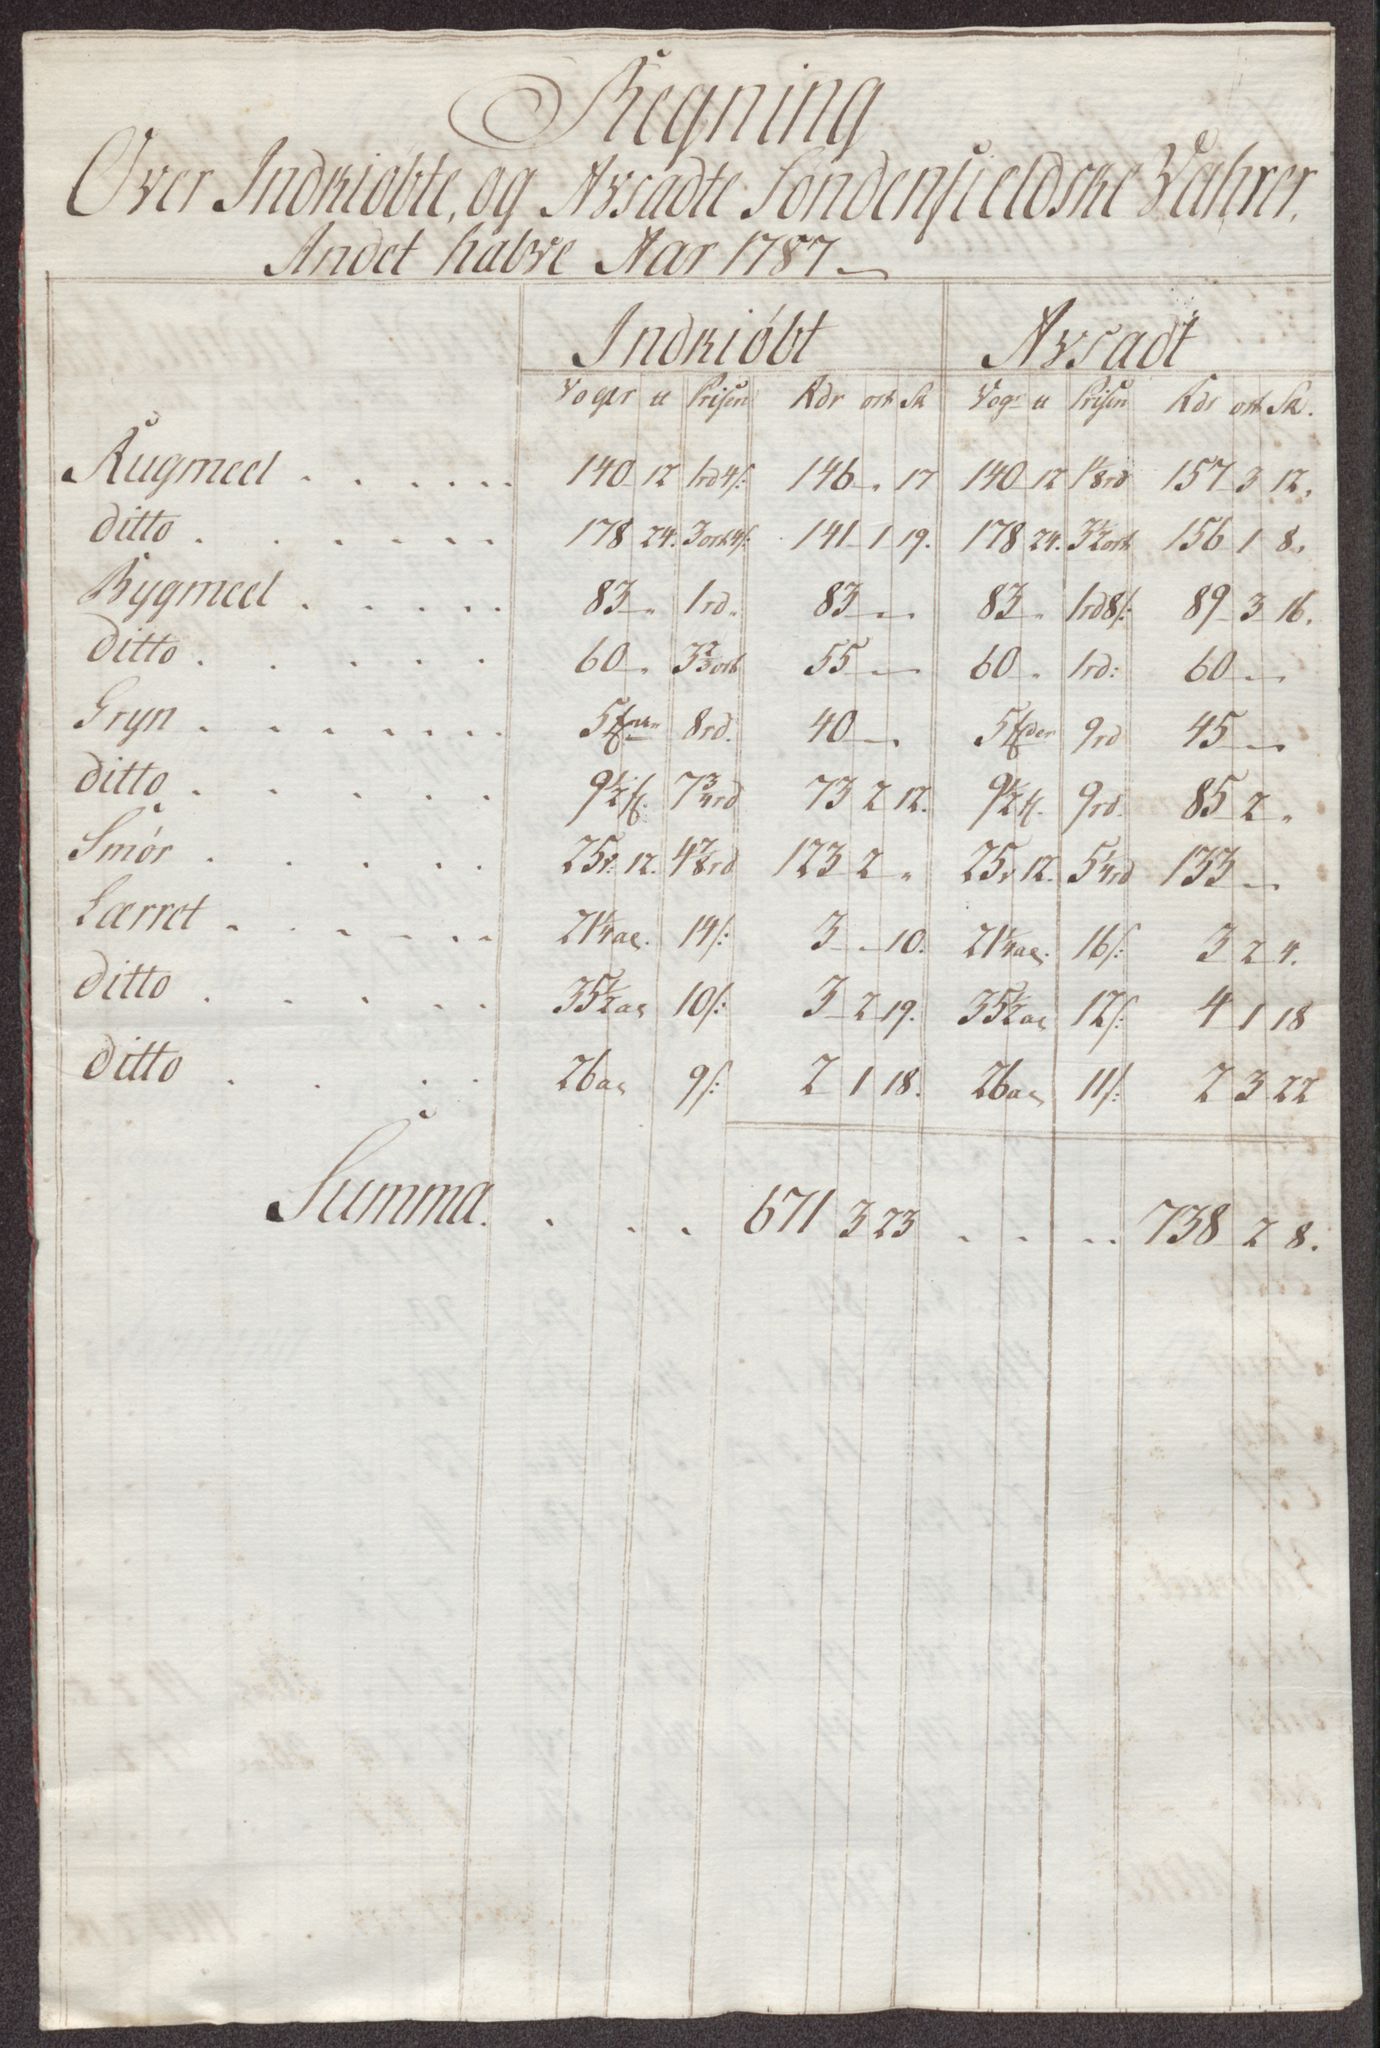 Regning
Over Indkiöbte, og Avsadte Söndenfieldske Vahrer,
Andet halve Aar 1787
Indkiöbt Avsadt
Voger ℔ Prisen Rdr ort Sk Vogr ℔ Prisen Rdr ort Sk.
Rugmeel . . . . . . 140 12 1rd4s: 146 „ 17 140 12 1⅛rd 157 3 12.
ditto . . . . . . 178 24. 3ort4s: 141 1 19. 178 24. 3½ort 156 1 8.
Bygmeel . . . . . 83 „ 1rd„ 83 „ „ 83 „ 1rd8s: 89 3 16.
ditto . . . . . 60 „ 3⅔ort 55 „ „ 60 „ 1rd: 60 „ „
Gryn . . . . . . . 8rd. 40 „ 9rd 45 „
ditto . . . . . 9½ 7¾rd 73 2 12. 9½ 9rd. 85 2 „
Smör . . . . . 25v: 12. 4⅞rd 123 2 „ 25v 12. 5¼rd 133 „
Lærret . . . . . . 21¼al. 14s: 3 „ 10. 21¼al. 16s: 3 2 4.
ditto . . . . . 35½al 10s: 3 2 19. 35½al 12s: 4 1 18
ditto . . . . 26al 9s: 2 1 18. 26al 11s: 2 3 22
Summa. . . . 671 3 23 . . . . 738 2 8.